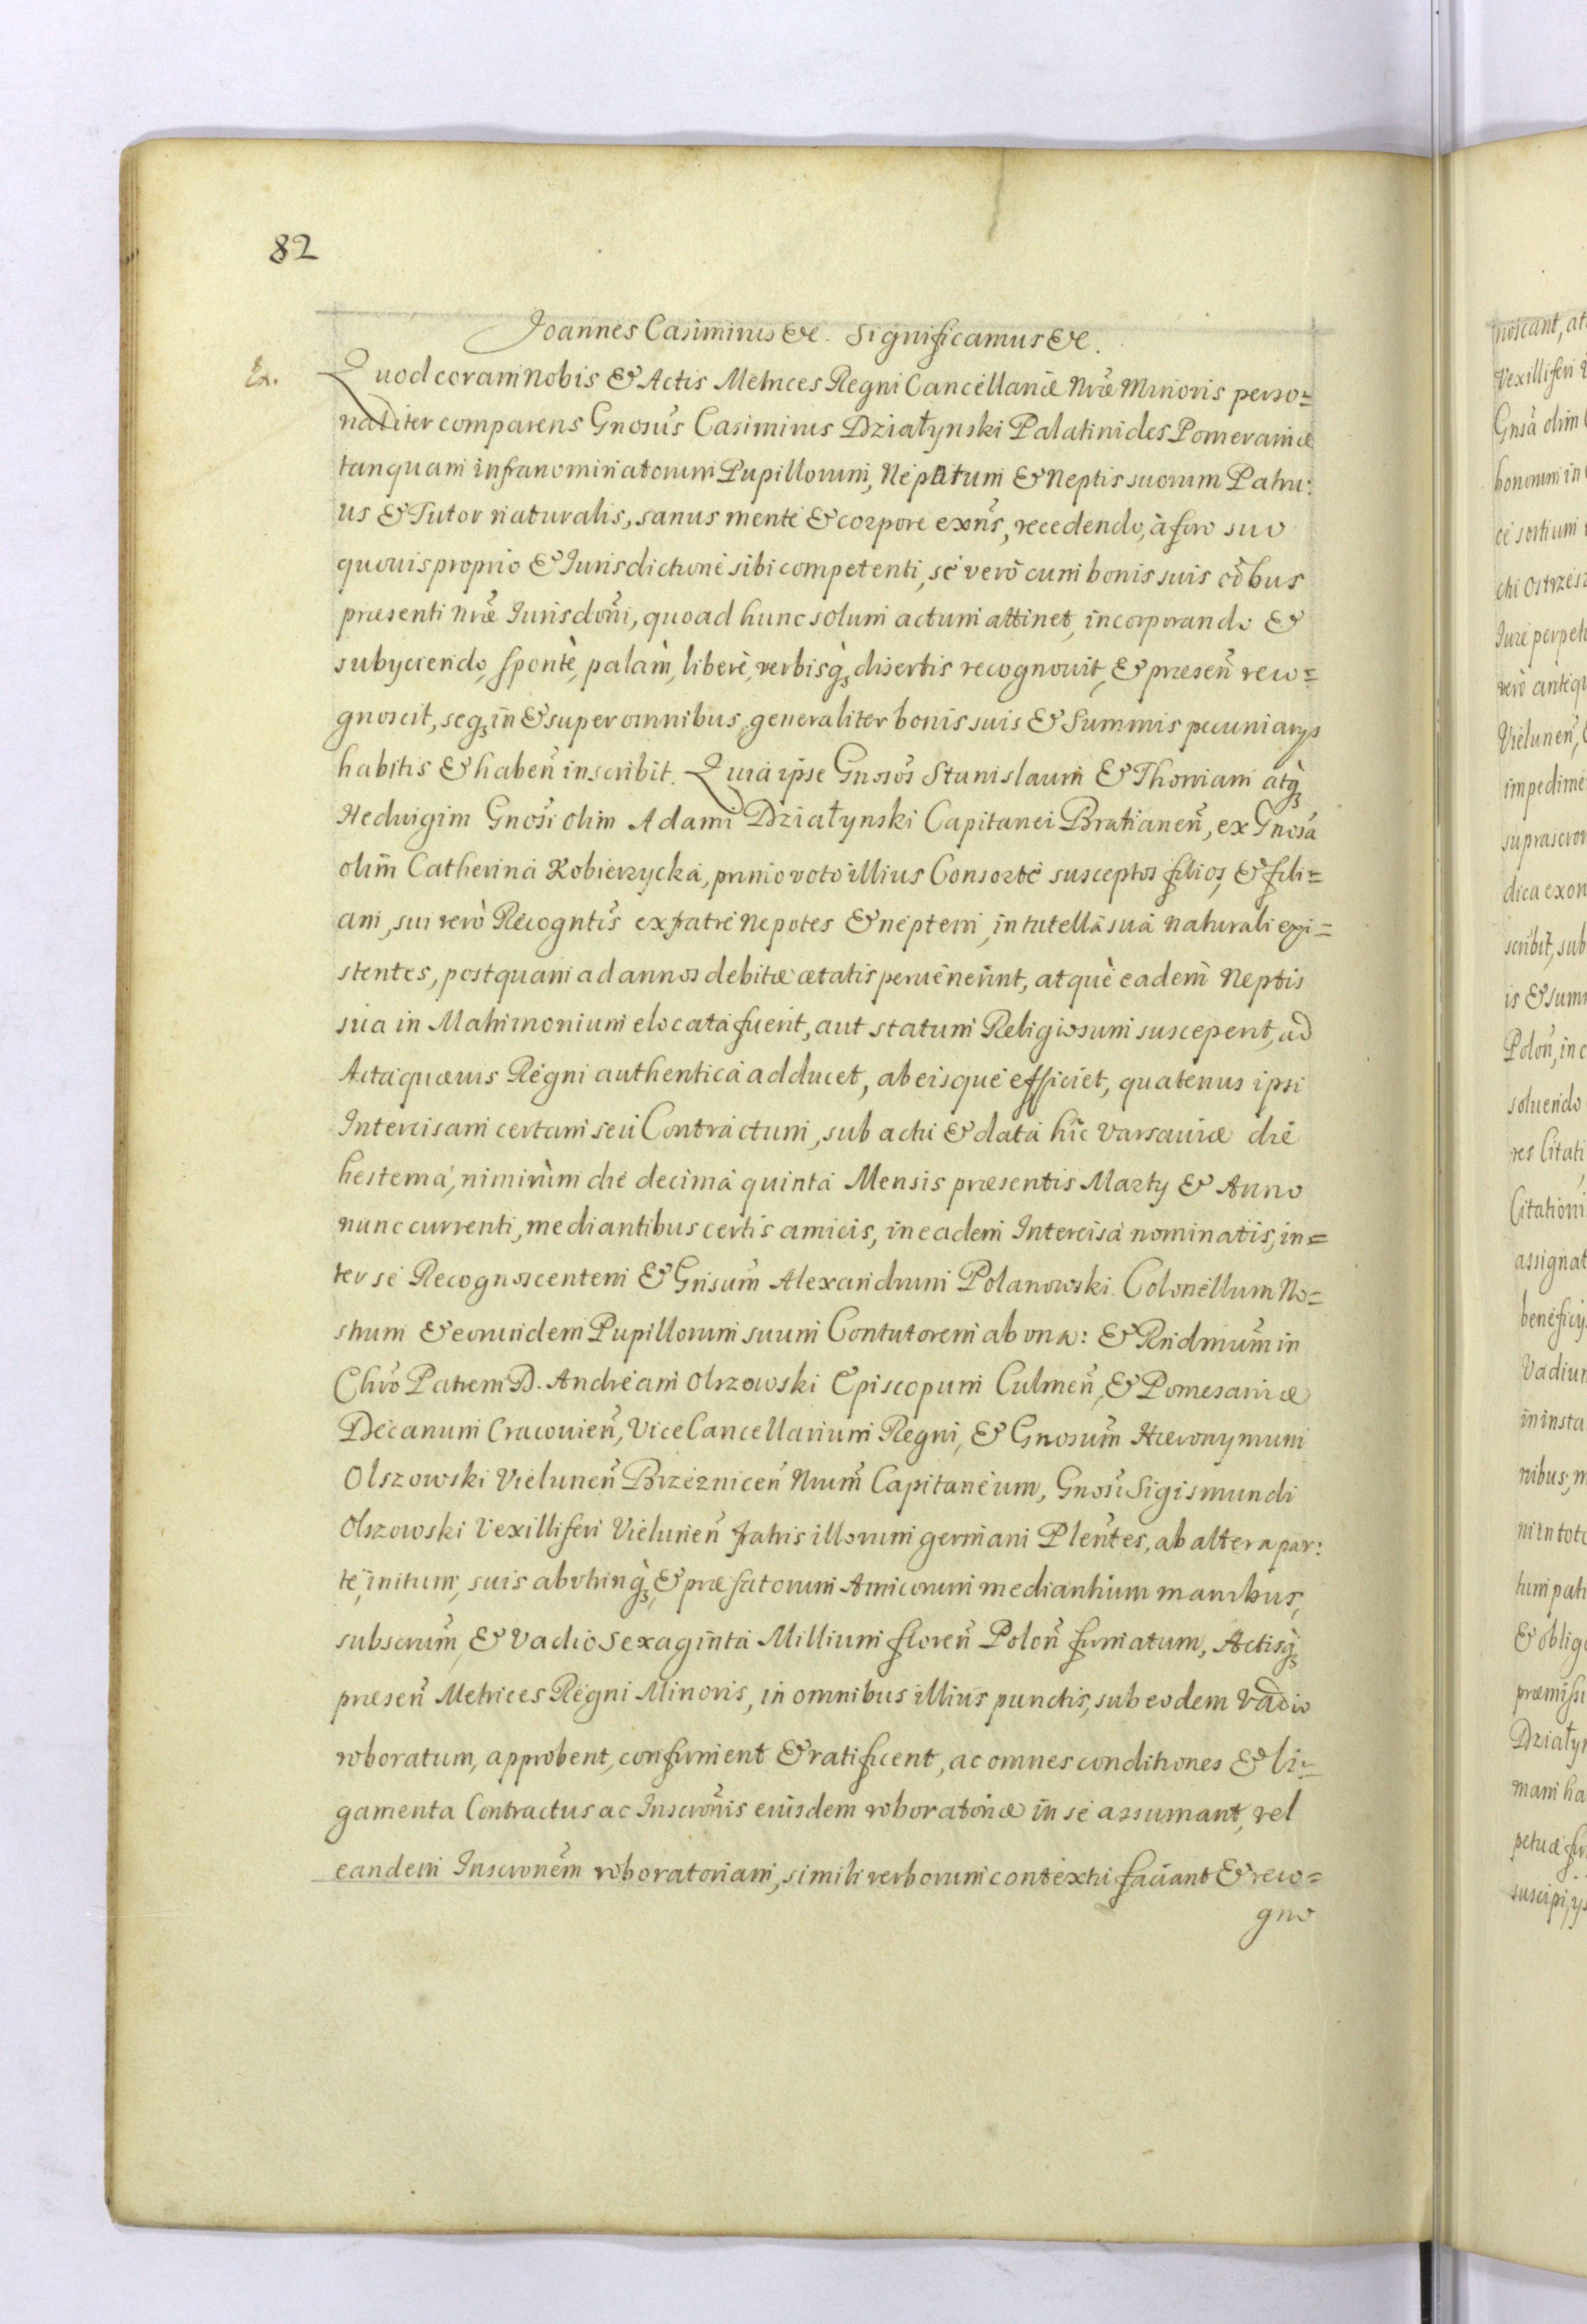 82
Joannes Casimirus &c. Significamus &c.
Ex.
Quod coram Nobis & Actis Metrices Regni Cancellariæ Nræ Minoris perso=
naliter comparens Gnosus Casimirus Działynski Palatinides Pomeraniæ
tanquam infranominatorum Pupillorum, Nepotum & Neptis suorum Patru:
us & Tutor naturalis, sanus mente & corpore exñs, recedendo, à foro suo
quovis proprio & Jurisdictione sibi competenti, se verò cum bonis suis oĩbus
præsenti Nræ Jurisdoñi, quoad hunc solum actum attinet, incorporando &
subyciendo, sponte, palàm, liberè, verbisq; disertis recognovit, & præseñ reco=
gnoscit, seq; in & super omnibus, generaliter bonis suis & Summis pecuniarys
habitis & habeñ inscribit. Quia ipse Gnosos Stanislaum & Thomam atq;
Hedvigim Gnosi olim Adami Działynski Capitanei Bratianeñ, ex Gnosa
olim Catherina Kobierzycka, primo voto illius Consorte susceptos filios, & fili=
am, sui verò Recogntis ex fratre nepotes & neptem, in tutella sua naturali exi=
stentes, postquam ad annos debitæ ætatis pervenerint, atquè eadem Neptis
sua in Matrimonium elocata fuerit, aut statum Religiosum susceperit, ad
Acta quævis Regni authentica adducet, ab eisque efficiet, quatenus ipsi
Intercisam certam seu Contractum, sub actu & data hic Varsaviæ die
hesterna, nimirùm die decima quinta Mensis præsentis Marty & Anno
nunc currenti, mediantibus certis amicis, in eadem Intercisa nominatis, in=
ter se Recognoscentem & Gnsum Alexandrum Polanowski Colonellum No=
strum & eorundem Pupillorum suum Contutorem ab una: & Rndmum in
Chro Patrem D. Andream Olszowski Episcopum Culmeñ, & Pomesaniæ
Decanum Cracovieñ, ViceCancellarium Regni, & Gnosum Hieronymum
Olszowski Vieluneñ Brzezniceñ Nrum Capitaneum, Gnosi Sigismundi
Olszowski Vexilliferi Vieluneñ fratris illorum germani Plentes, ab altera par:
te, initum, suis abvtrinq;, & præfatorum Amicorum mediantium manibus,
subscrum, & vadio Sexaginta Millium floreñ Poloñ firmatum, Actisq;
præseñ Metrices Regni Minoris, in omnibus illius punctis, sub eodem Vadio
roboratum, approbent, confirment & ratificent, ac omnes conditiones & li=
gamenta Contractus ac Inscroñis eiusdem roboratoriæ in se assumant, vel
eandem Inscronem roboratoriam, simili verborum contextu faciant & reco=
gno